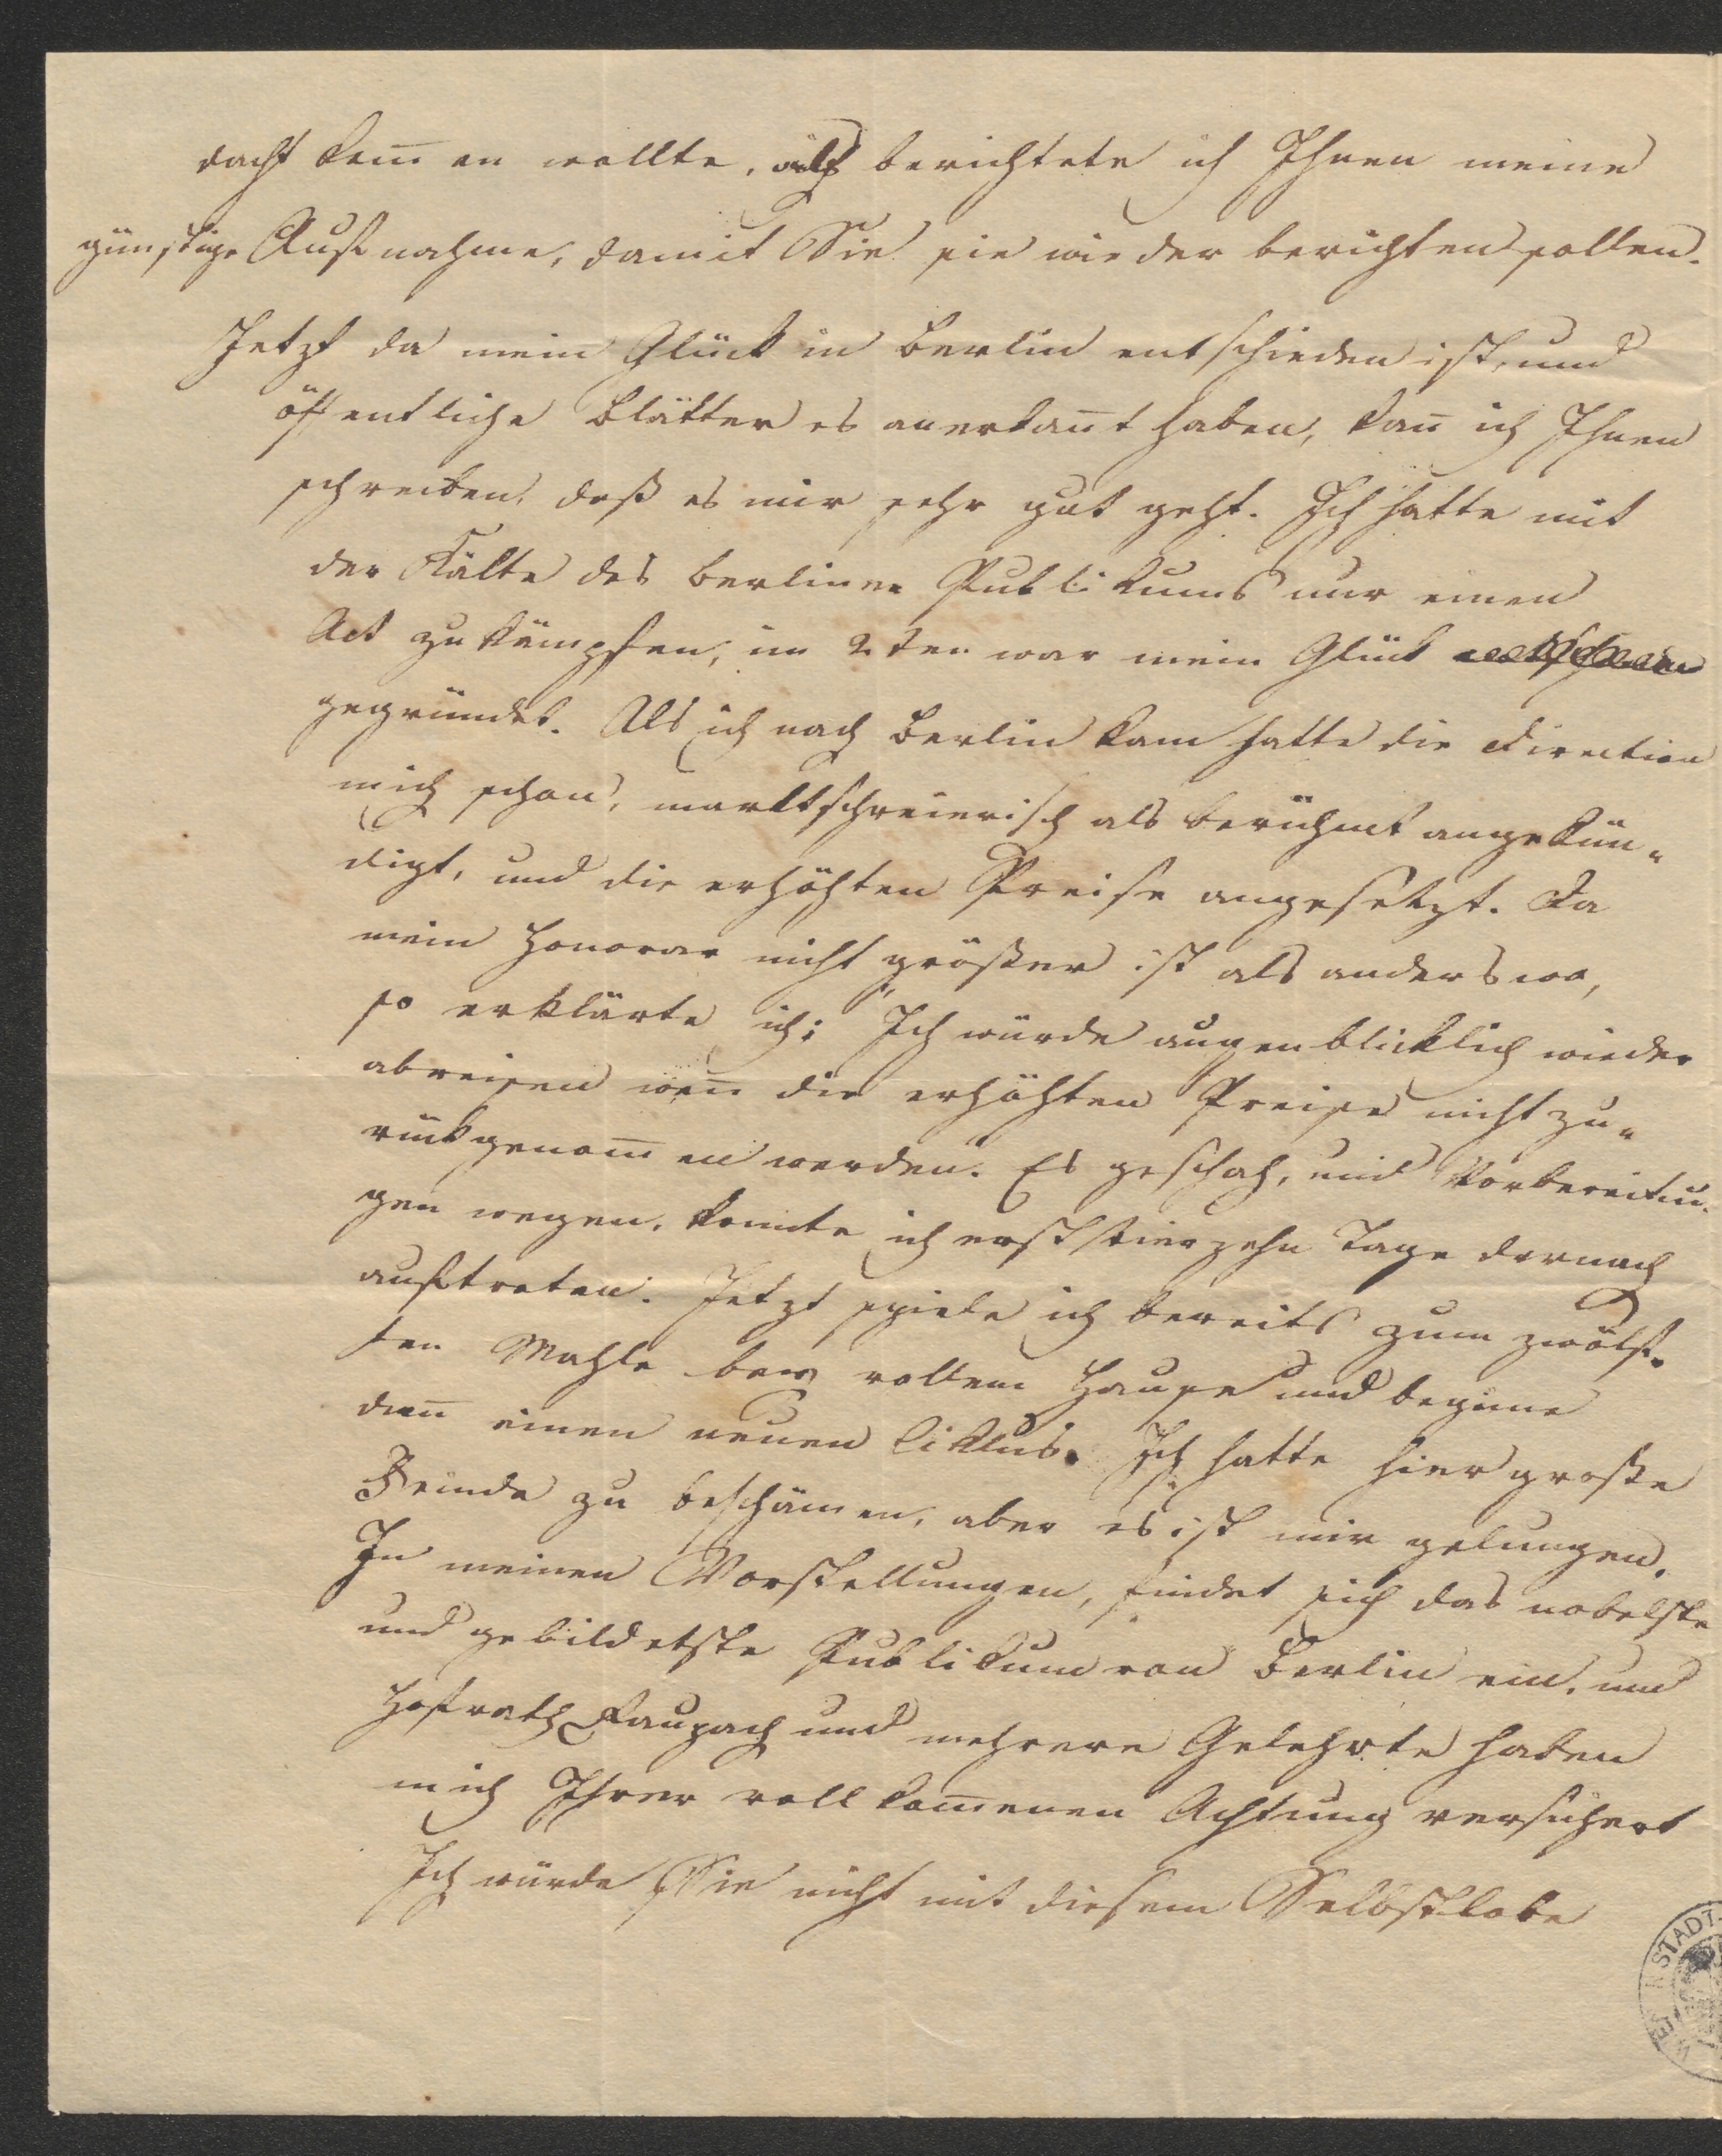 dacht kom̅en wollte, als berichtete ich Ihnen meine
günstige Aufnahme, damit Sie sie wieder berichten sollen.
Jetzt da mein Glück in Berlin entschieden ist, und
öffentliche Blätter es anerkan̅t haben, kan̅ ich Ihnen
schreiben, daß es mir sehr gut geht. Ich hatte mit
der Kälte des Berliner Publikums nur einen
Act zu kämpfen, im 2ten war mein Glück
gegründet. Als ich nach Berlin kam hatte die Direction
mich schon, marktschreierisch als berühmt angekün„
digt, und die erhöhten Preise angesetzt. Da
mein Honorar nicht größer ist als anderswo,
so erklärte ich: „Ich würde augenblicklich wieder
abreisen wen̅ die erhöhten Preise nicht zu„
rückgenom̅en werden. Es geschah, und Vorbereitun„
gen wegen, konnte ich erst vierzehn Tage darnach
auftreten. Jetzt spiele ich bereits zum zwölf„
ten Mahle bey vollem Hause und beginne
dan̅ einen neuen Ciklus. Ich hatte hier große
Feinde zu beschämen, aber es ist mir gelungen.
In meinen Vorstellungen, findet sich das nobelste
und gebildetste Publikum von Berlin ein, und
Hofrath Raupach und mehrere Gelehrte haben
mich Ihrer vollkom̅enen Achtung versichert
Ich würde Sie nicht mit diesem Selbstlobe
WIENER STADT